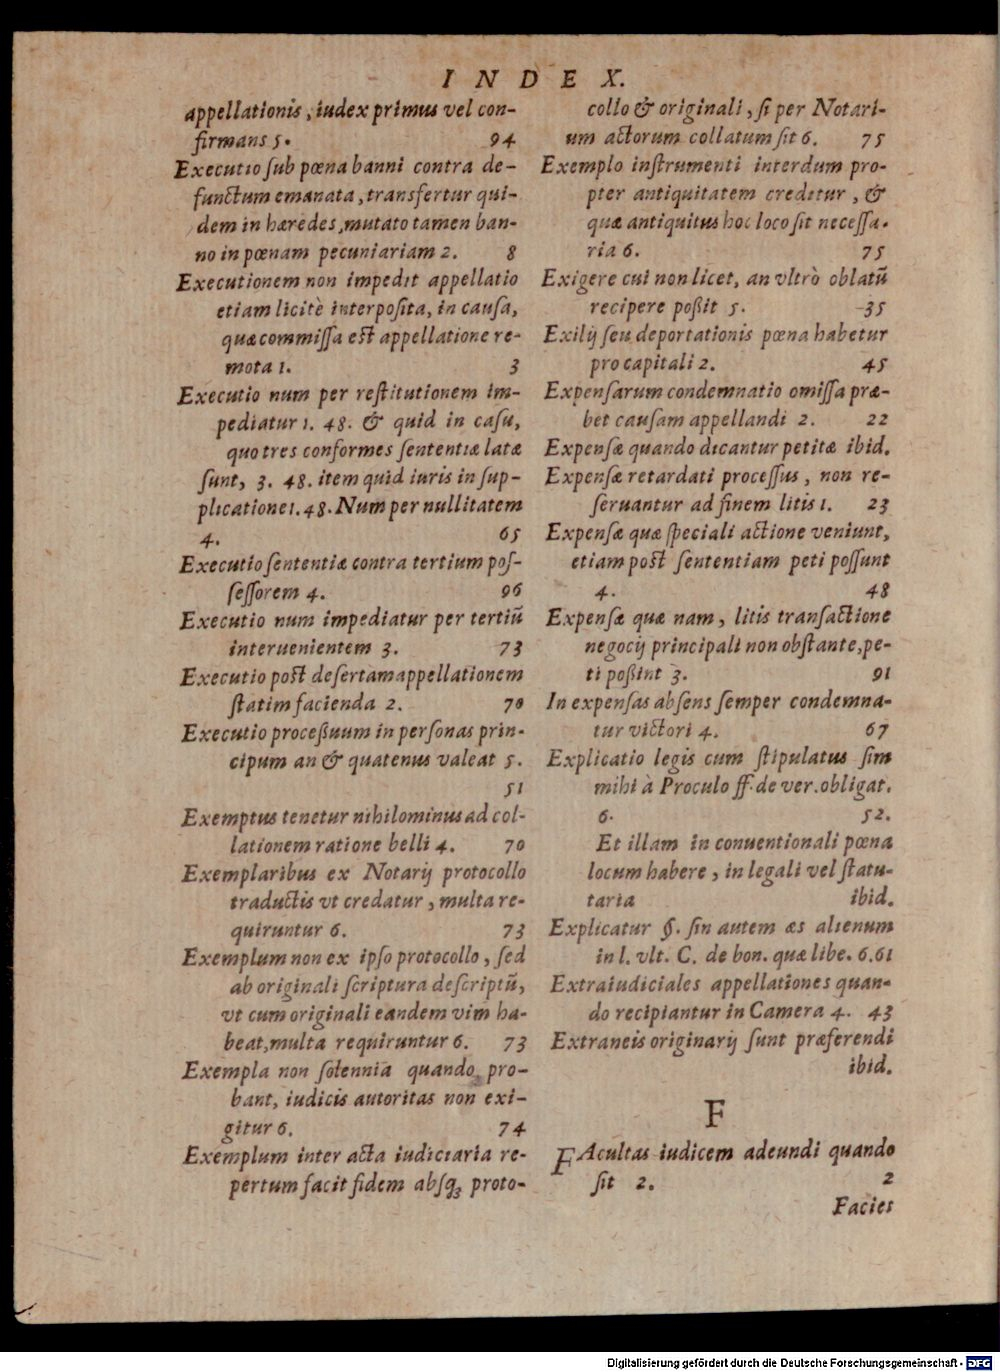 INDEX.
appellationis, iudex primus vel con-
firmans 5. 94
Executio sub pœna banni contra de-
functum emanata, transfertur qui-
dem in hæredes, mutato tamen ban-
no in pœnam pecuniariam 2. 8
Executionem non impedit appellatio
etiam licitè interposita, in causa,
quæ commissa est appellatione re-
mota 1. 3
Executio num per restitutionem im-
pediatur 1. 48. & quid in casu,
quo tres conformes sententiæ latæ
sunt, 3. 48. item quid iuris in sup-
plicatione 1. 48. Num per nullitatem
4. 65
Executio sententiæ contra tertium pos-
sessorem 4. 96
Executio num impediatur per tertiū
interuenientem 3. 73
Executio post desertam appellationem
statim facienda 2. 70
Executio processuum in personas prin-
cipum an & quatenus valeat 5.
51
Exemptus tenetur nihilominus ad col-
lationem ratione belli 4. 70
Exemplaribus ex Notarij protocollo
traductis vt credatur, multa re-
quiruntur 6. 73
Exemplum non ex ipso protocollo, sed
ab originali scriptura descriptū,
vt cum originali eandem vim ha-
beat, multa requiruntur 6. 73
Exempla non solennia quando pro-
bant, iudicis autoritas non exi-
gitur 6. 74
Exemplum inter acta iudiciaria re-
pertum facit fidem absq; proto-
collo & originali, si per Notari-
um actorum collatum sit 6. 75
Exemplo instrumenti interdum pro-
pter antiquitatem creditur, &
quæ antiquitus hoc loco sit necessa-
ria 6. 75
Exigere cui non licet, an vltrò oblatū
recipere possit 5. 35
Exilij seu deportationis pœna habetur
pro capitali 2. 45
Expensarum condemnatio omissa præ-
bet causam appellandi 2. 22
Expensæ quando dicantur petitæ ibid.
Expensæ retardati processus, non re-
seruantur ad finem litis 1. 23
Expensæ quæ speciali actione veniunt,
etiam post sententiam peti possunt
4. 48
Expensæ quæ nam, litis transactione
negocij principali non obstante, pe-
ti possint 3. 91
In expensas absens semper condemna-
tur victori 4. 67
Explicatio legis cum stipulatus sim
mihi à Proculo ff. de ver. obligat.
6. 52.
Et illam in conuentionali pœna
locum habere, in legali vel statu-
taria ibid.
Explicatur §. sin autem æs alienum
in l. vlt. C. de bon. quæ libe. 6. 61
Extraiudiciales appellationes quan-
do recipiantur in Camera 4. 43
Extraneis originarij sunt præferendi
ibid.
F
FAcultas iudicem adeundi quando
sit 2. 2
Facies
Digitalisierung gefördert durch die Deutsche Forschungsgemeinschaft - DFG